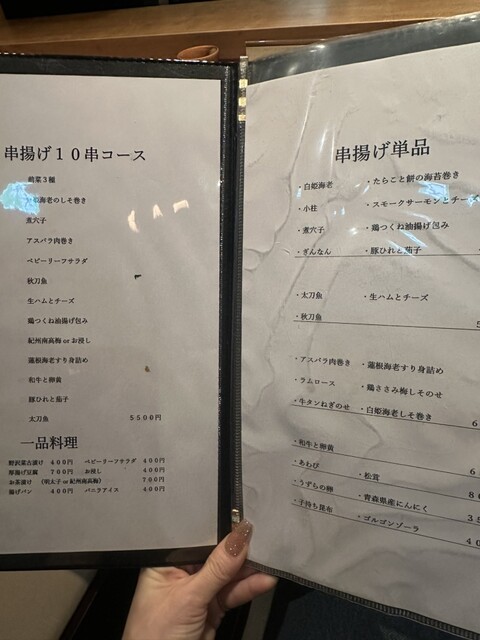 串揚げ10串コース
前菜3種
海老のしそ巻き
煮穴子
アスパラ肉巻き
ベビーリーフサラダ
秋刀魚
生ハムとチーズ
鶏つくね油揚げ包み
紀州南高梅 or お浸し
蓮根海老すり身詰め
和牛と卵黄
豚ひれと茄子
太刀魚 5500円
一品料理
野沢菜古漬け 400円 ベビーリーフサラダ 400円
厚揚げ豆腐 700円 お浸し 400円
お茶漬け (明太子 or 紀州南高梅) 700円
揚げパン 400円 バニラアイス 400円
串揚げ単品
・白姫海老 ・たらこと餅の海苔巻き
・小柱 ・スモークサーモンとチーズ
・煮穴子 ・鶏つくね油揚げ包み
・ぎんなん ・豚ひれと茄子
・太刀魚 ・生ハムとチーズ
・秋刀魚
・アスパラ肉巻き ・蓮根海老すり身詰め
・ラムロース ・鶏ささみ梅しそのせ
・牛タンねぎのせ ・白姫海老しそ巻き
・和牛と卵黄
・あわび ・松茸
・うずらの卵 ・青森県産にんにく
・子持ち昆布 ・ゴルゴンゾーラ